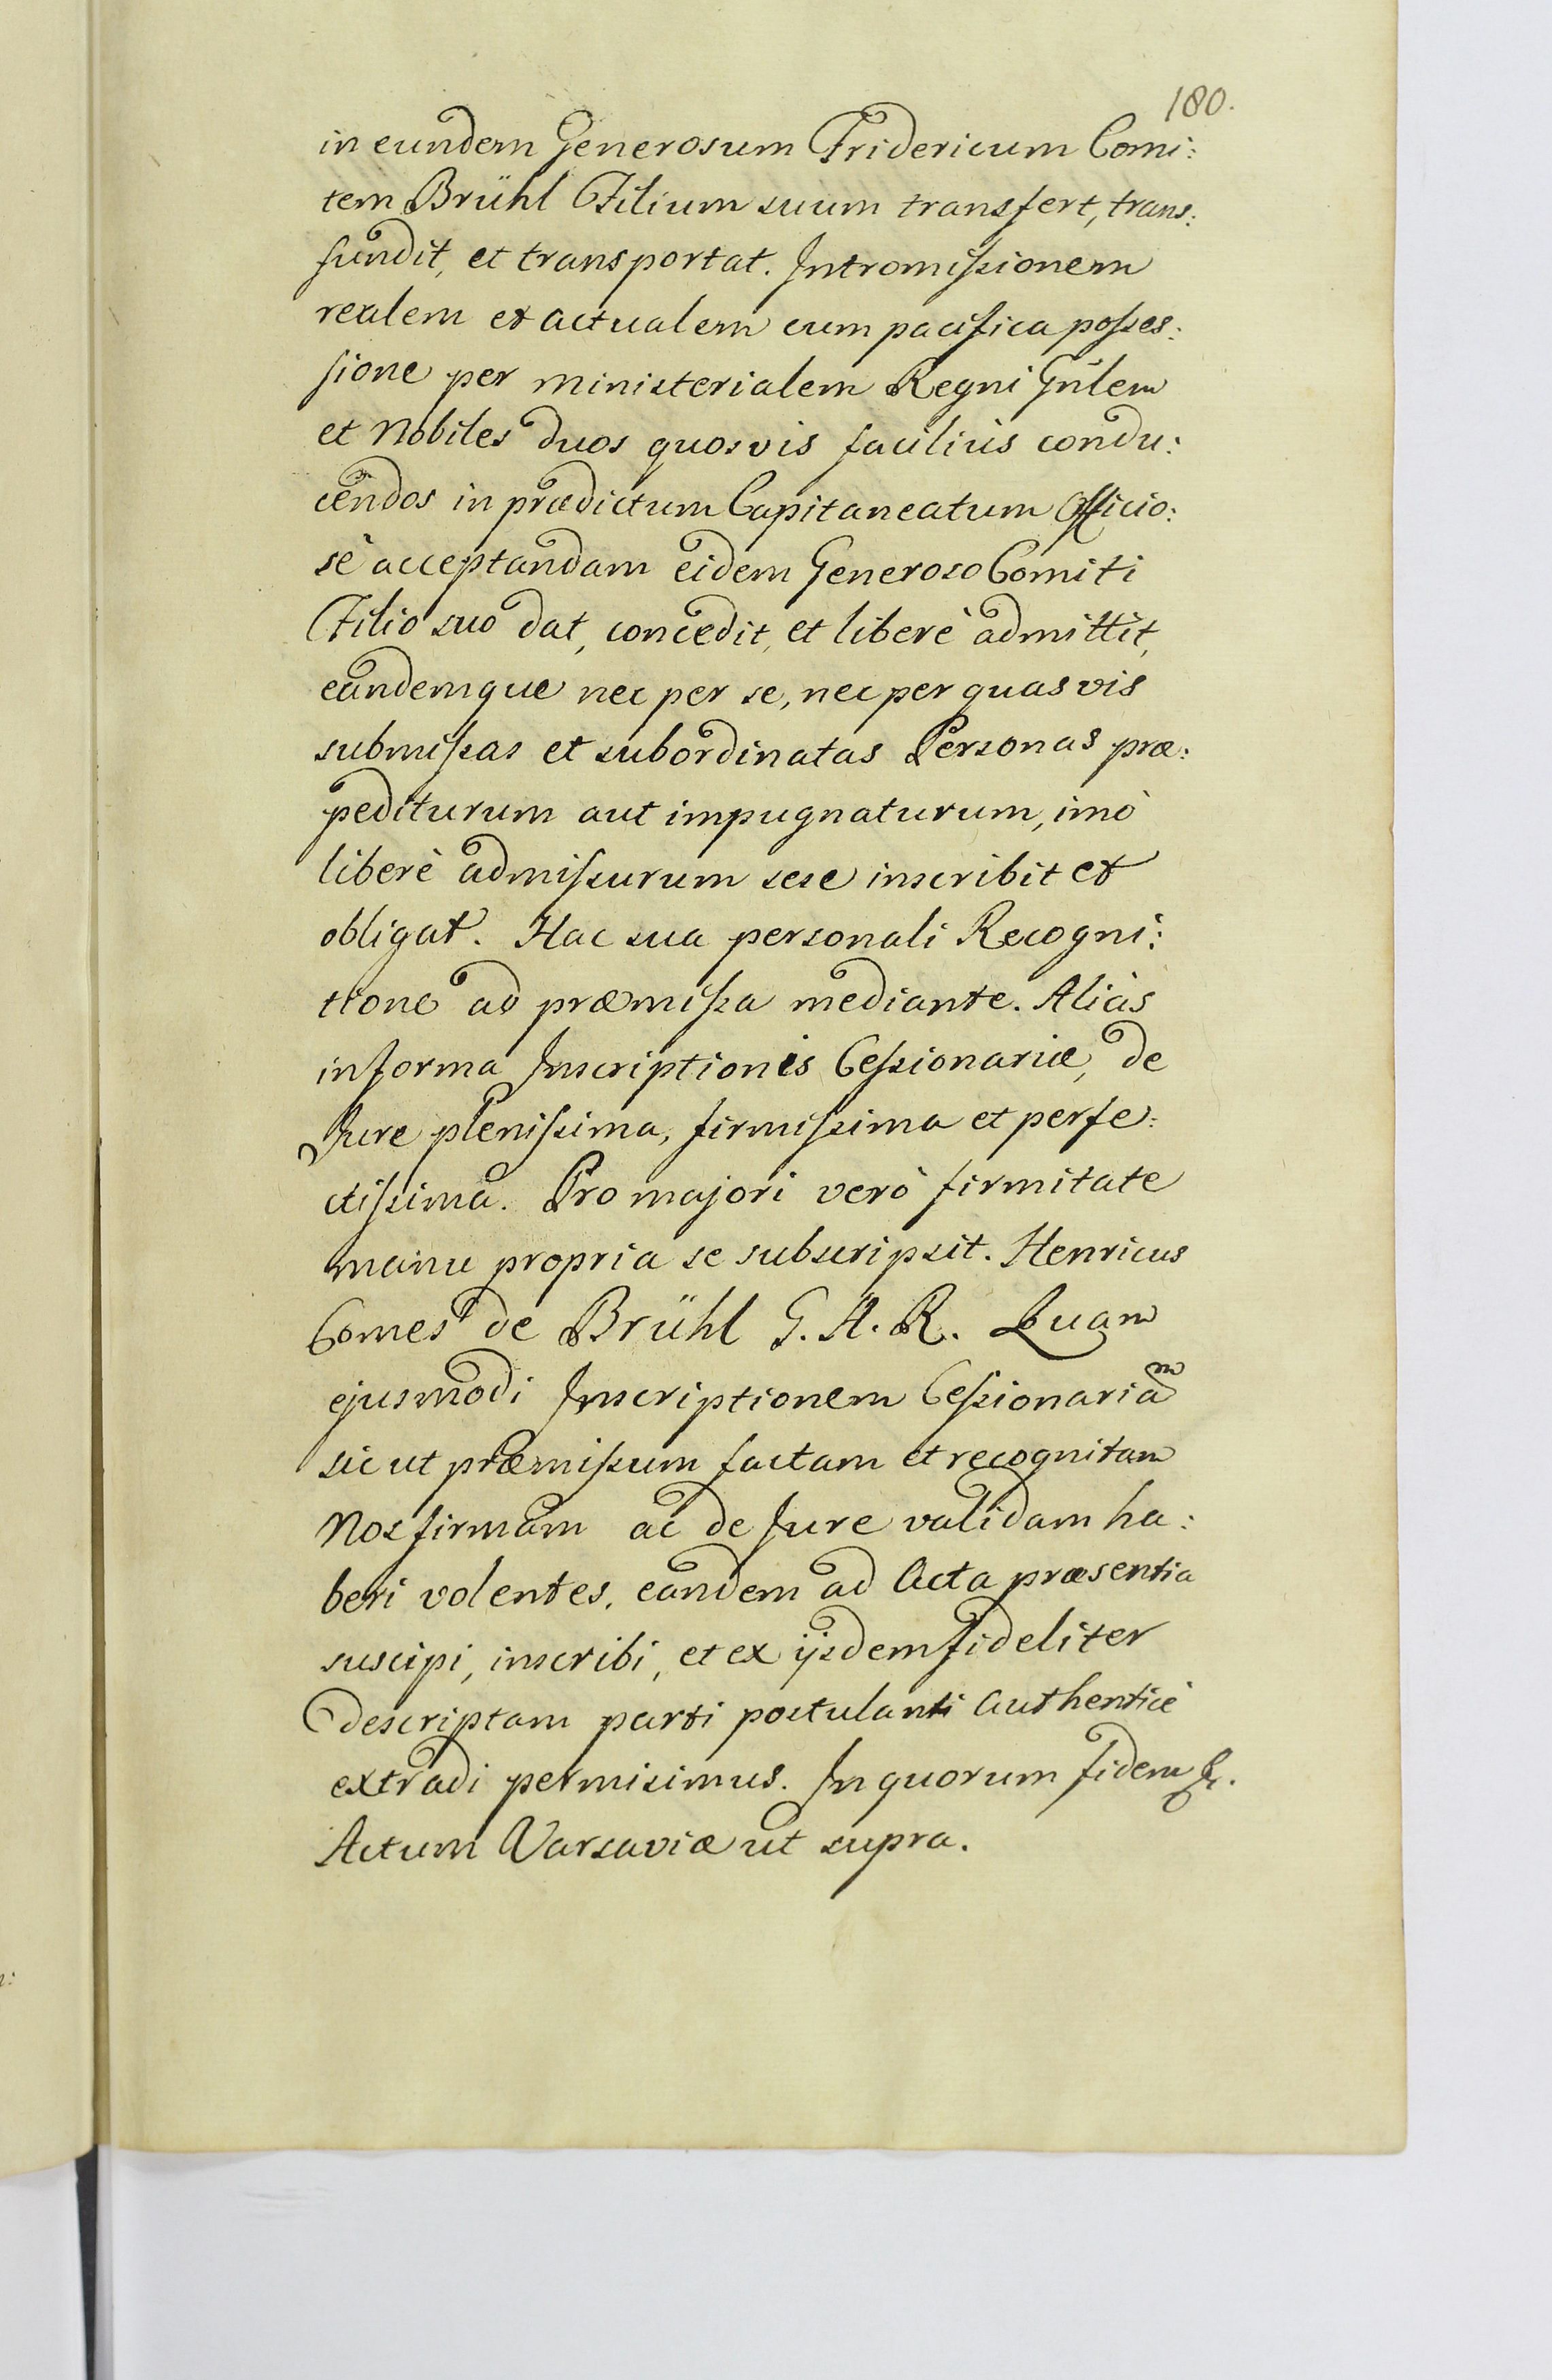 180.
in eundem Generosum Fridericum Comi:
tem Brühl Filium suum transfert, trans:
fundit, et transportat. Intromißionem
realem et actualem cum pacifica poßes:
sione per ministerialem Regni Gnlem
et Nobiles duos quosvis faciliùs condu:
cendos in prædictum Capitaneatum Officio:
sè acceptandam eidem Generoso Comiti
Filio suo dat, concedit, et liberè admittit,
eandemque nec per se, nec per quasvis
submißas et subordinatas Personas præ:
pediturum aut impugnaturum, imò
liberè admißurum sese inscribit et
obligat. Hac sua personali Recogni:
tione ad præmißa mediante. Aliàs
in forma Inscriptionis Ceßionariæ, de
Jure plenißima, firmißima et perfe:
ctißima. Pro majori verò firmitate
manu propria se subscripsit. Henricus
Comes de Brühl G. A. R. Quam
ejusmodi Inscriptionem Ceßionariam
sic ut præmißum factam et recognitam
Nos firmam ac de Jure validam ha:
beri volentes, eandem ad Acta præsentia
suscipi, inscribi, et ex ijsdem fideliter
descriptam parti postulanti authenticè
extradi permisimus. In quorum fidem &c.
Actum Varsaviæ ut supra.